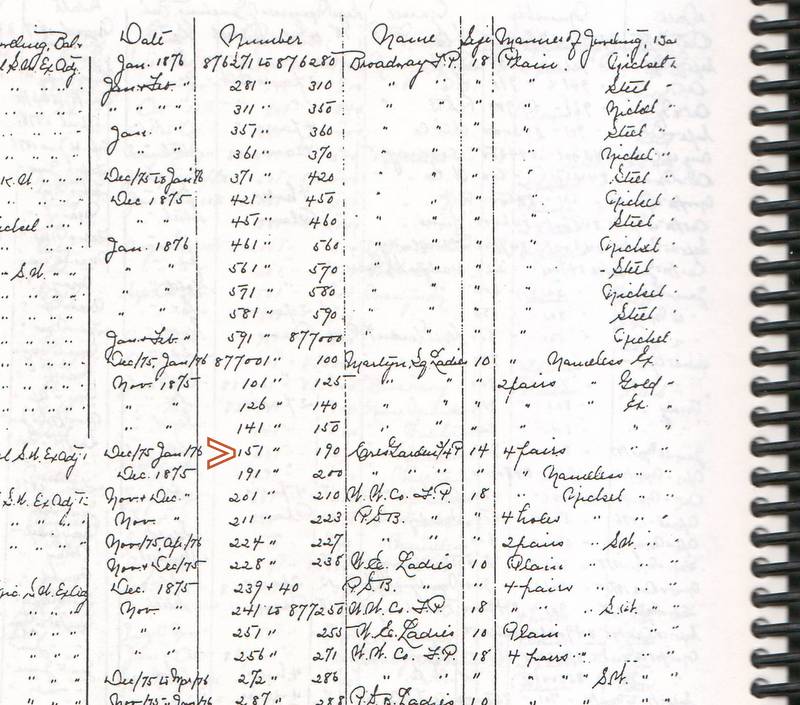 Date Number Name Size Manner of Jeweling, Ba
Jan. 1876 876271 to 876280 Broadway F.P. 18 Plain. Nickel
Jan + Feb " 281 " 310 " " " " Steel "
" " 311 " 350 " " " " Nickel "
Jan. " 351 " 360 " " " " Steel "
" " 361 " 370 " " " " Nickel "
K.W. Dec/75 to Jan/76 371 " 420 " " " " Steel "
Dec 1875 421 " 450 " " " " Nickel "
" " 451 " 460 " " " " Steel "
Nickel " " Jan. 1876 461 " 560 " " " " Nickel "
" S.W. " " " 561 " 570 " " " " Steel "
" " 571 " 580 " " " " Nickel "
" " 581 " 590 " " " " Steel "
Jan + Feb. " 591 " 877000 " " " " Nickel
Dec/75, Jan/76 877001 " 100 Martyn, Sq Ladies 10 " Nameless Ex
Nov. 1875 101 " 125 " " " 2 pairs " Gold "
" " 126 " 140 " " " " " Ex. "
" " 141 " 150 " " " " " "
S.W. Ex Adj Dec/75 Jan/76 > 151 " 190 Cres Garden 14 4 pairs " "
Dec. 1875 191 " 200 " " " " Nameless " "
S.W. Ex Adj Nov + Dec. " 201 " 210 W.W. Co. F.P. 18 " Nickel " "
Nov. " 211 " 223 P.S.B. " " 4 holes " " "
Nov/75, Apr/76 224 " 227 " " " 2 pairs " S.W. "
Nov + Dec/75 228 " 238 W. Co. Ladies 10 Plain " " "
S.W. Ex Adj Dec. 1875 239 + 40 P.S.B. " " 4 pairs " " "
Nov. " 241 to 877250 W.W. Co. F.P. 18 " " S.W. "
" " 251 " 255 W. Co. Ladies 10 Plain " " "
" " 256 " 271 W.W. Co. F.P. 18 4 pairs " " "
Dec/75 to Apr/76 272 " 286 " " " " " S.W. "
287 " 288 P.S.B. Ladies 10 " " "